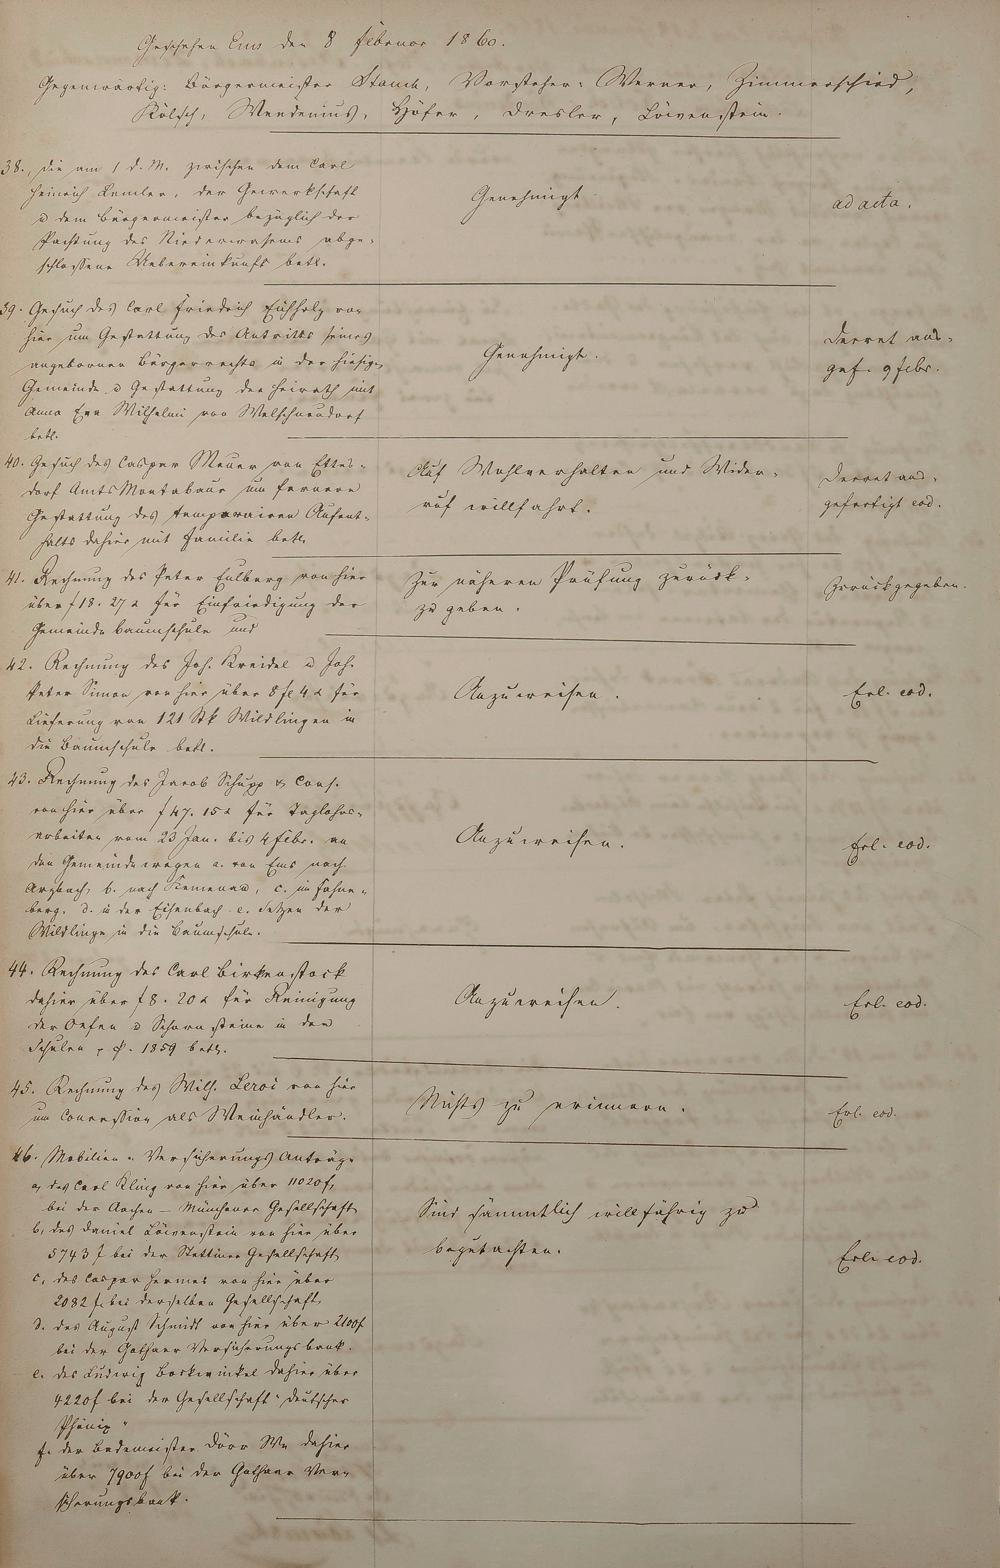 Geschehen Ems den 8 Februar 1860.
Gegenwärtig: Bürgermeister Stamm, Vorsteher: Werner, Zimmerschied,
Kölsch, Wendenius, Höfer, Dresler, Löwenstein.
38., die am 1 d. M. zwischen dem Carl
Heinrich Lemler, der Gewerkschaft
u dem Bürgermeister bezüglich der
Pachtung des Niederwasens abge-
schlossene Uebereinkunft betr.
Genehmigt
ad acta.
39. Gesuch des Carl Friedrich Eichholz von
hier um Gestattung des Antritts seines
angebornen Bürgerrechts in der hiesigen
Gemeinde u Gestattung der Heirath mit
Anna Eva Wilhelmi von Welschneudorf
betr.
Genehmigt.
Decret aus-
gef. 9 Febr.
40. Gesuch des Caspar Meuer von Ettes-
dorf Amts Montabaur um fernere
Gestattung des temporairen Aufent-
halts dahier mit Familie betr.
Auf Wohlverhalten und Wider-
ruf willfahrt.
Decret aus-
gefertigt eod.
41. Rechnung des Peter Eulberg von hier
über f 18. 27 x für Einfriedigung der
Gemeindebaumschule und
Zur näheren Prüfung zurück-
zu geben.
Zurückgegeben.
42. Rechnung des Joh. Kreidel u Joh.
Peter Simon von hier über 8 fl 4 x für
Lieferung von 121 Stk Wildlingen in
die Baumschule betr.
Anzuweisen.
Erl. eod.
43. Rechnung des Jacob Schupp & Cons.
von hier über f 47. 15 x für Taglohns-
arbeiten vom 23 Jan. bis 4 Febr. an
den Gemeindewegen a. von Ems nach
Arzbach, b. nach Kemenau, c. im Hahne-
berg, d. in der Eisenbach e. Setzen der
Wildlinge in die Baumschule.
Anzuweisen.
Erl. eod.
44. Rechnung des Carl Birkenstock
dahier über f 8. 20 x für Reinigung
der Oefen u Schornsteine in den
Schulen 1859 betr.
Anzuweisen.
Erl. eod.
45. Rechnung des Wilh. Leroi von hier
um Concession als Weinhändler.
Nichts zu erinnern.
Erl. eod.
46. Mobilien-Versicherungs Anträge
a, des Carl Kling von hier über 11020 f,
bei der Aachen-Münchener Gesellschaft
b, des Daniel Löwenstein von hier über
5743 f bei der Stettiner Gesellschaft
c, des Caspar Hermes von hier über
2082 f bei derselben Gesellschaft,
d. des August Schmidt von hier über 2100 f
bei der Gothaer Versicherungsbank.
e. des Ludwig Borkwinkel dahier über
4220 f bei der Gesellschaft "deutscher
Phönix"
f. der Bademeister Dörr We dahier
über 7900 f bei der Gothaer Ver-
sicherungsbank.
Sind sämmtlich willfährig zu
begutachten.
Erl. eod.